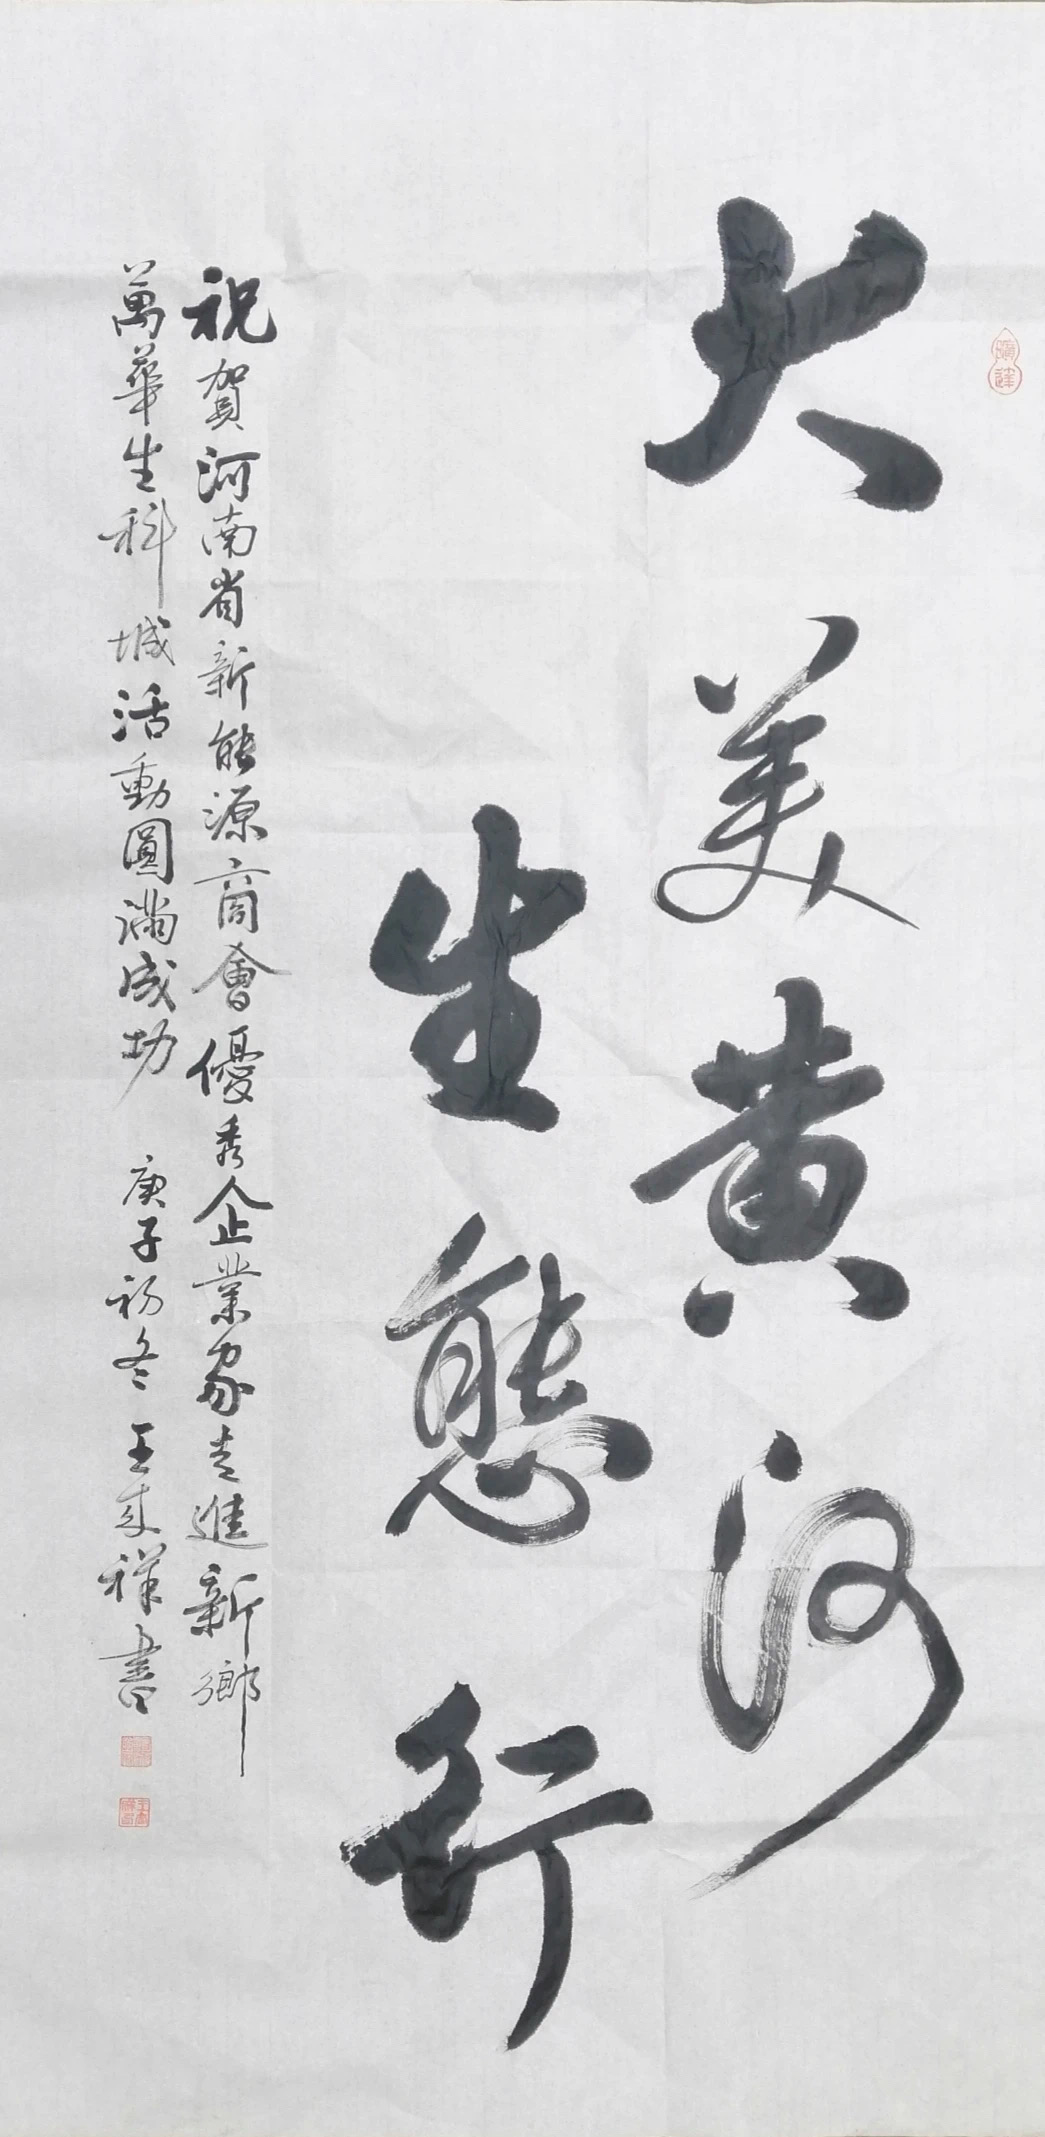 大美黄河
生態行
祝賀河南省新能源商會優秀企業家走進新鄉
萬華生科城活動圓滿成功 庚子初冬 王来祥書